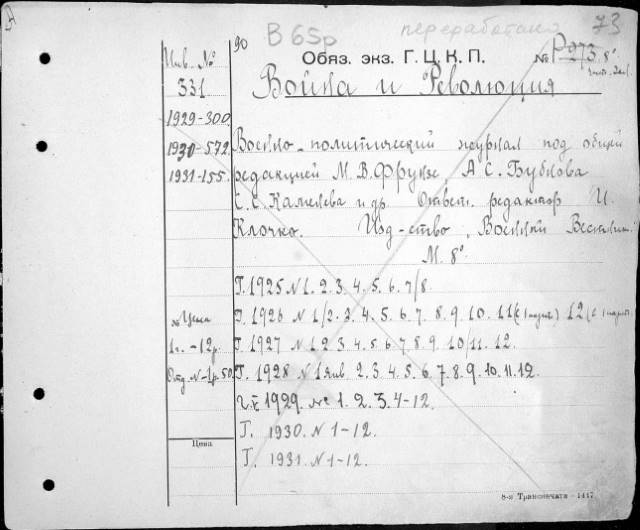 переработано 73
90 В 65р
Обяз. экз. Г. Ц. К. П. № Р 273 8°
Инв. №
331
Война и Революция
1929-300.
1930-572.
1931-155.
Военно-политический журнал под общей
редакцией М. В. Фрунзе А. С. Бубнова
С. С. Каменева и др. Ответ. редактор И.
Клочко. Изд-ство „Военный Вестник
М. 8°
Г. 1925 № 1. 2. 3. 4. 5. 6. 7/8.
Цена Г. 1926 № 1/2. 3. 4. 5. 6. 7. 8. 9. 10. 11 12
1 г. - 12 р. Г. 1927 № 1 2 3 4. 5. 6 7 8 9. 10/11. 12.
Отд № - 1 р. 50 Г. 1928 № 1 янв 2. 3. 4. 5. 6. 7. 8. 9. 10. 11. 12.
1929. № 1. 2. 3. 4-12.
Г. 1930. № 1-12.
Цена
Г. 1931. № 1-12.
8-я Транспечати - 1417